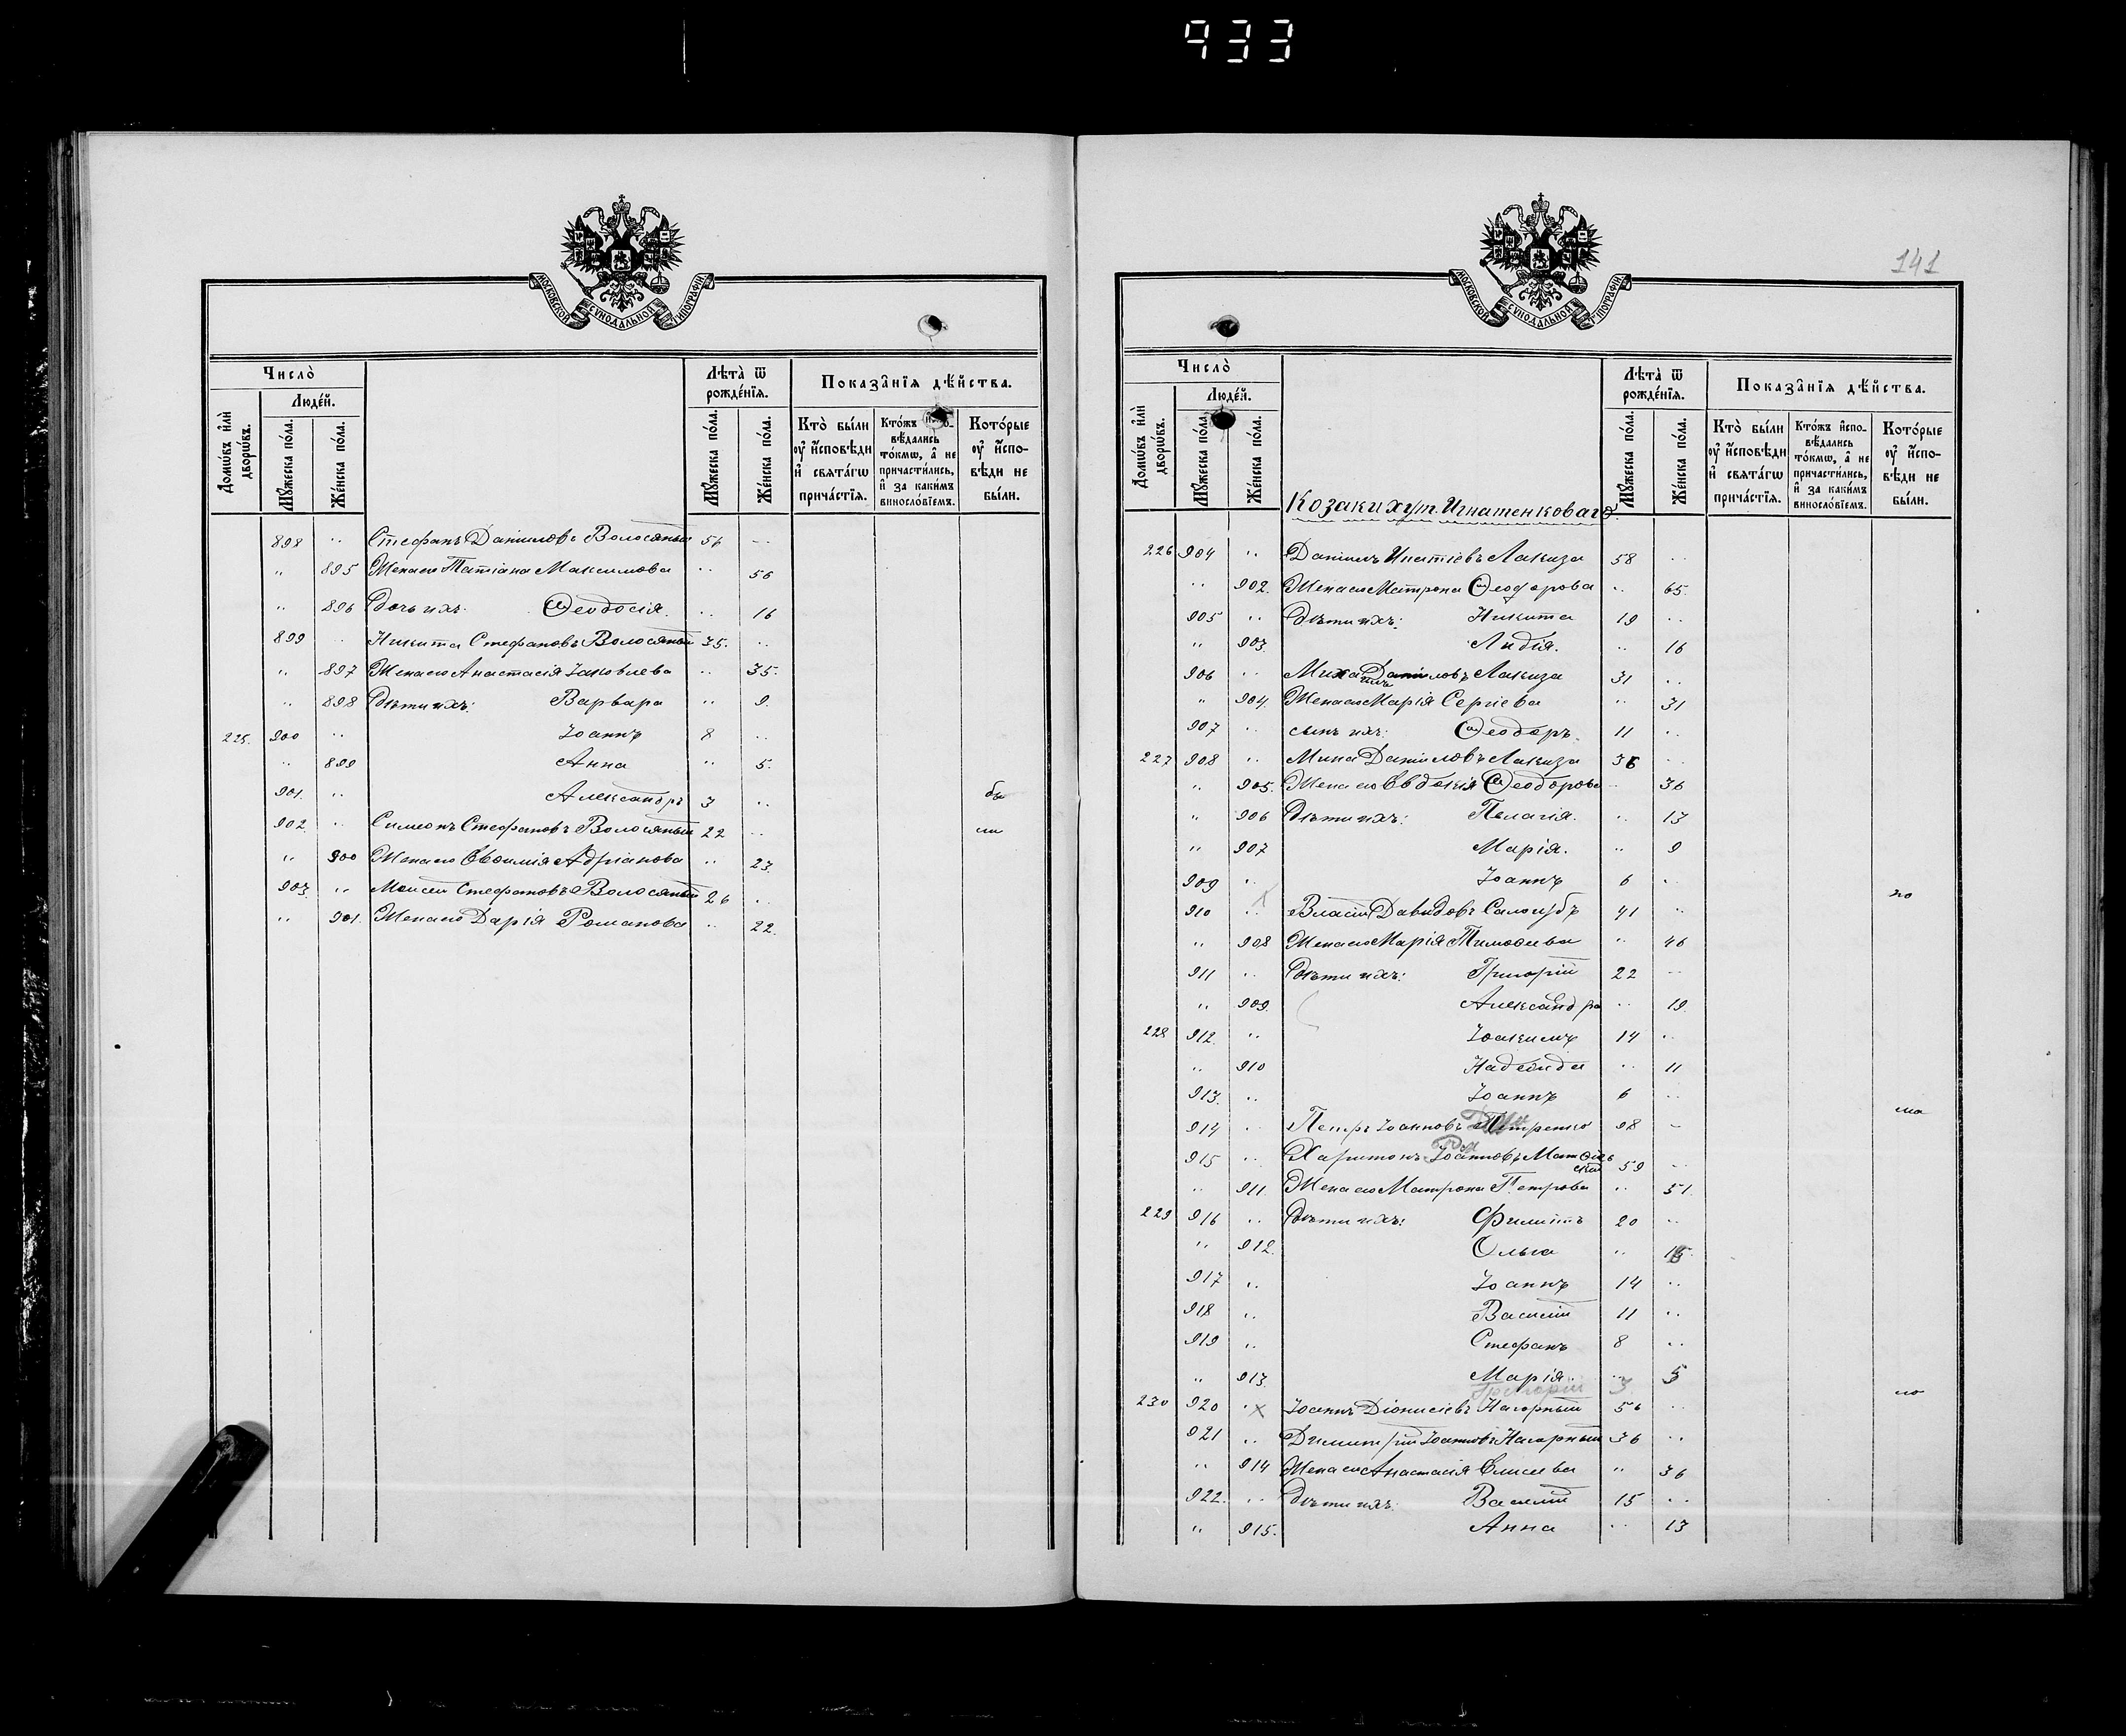 933
МОСКОВСКОЙ СѴНОДАЛЬНОЙ ТИПОГРАФІИ.
Число̀
Люде́й.
Домѡ́въ и҆лѝ дворѡ́въ.
Мꙋ́жеска по́ла.
Же́нска по́ла.
Лѣ́та ѿ рожде́нїѧ.
Мꙋ́жеска по́ла.
Же́нска по́ла.
Показа̑нїѧ дѣ́йства.
Кто̀ бы́ли ᲂу҆ и҆́сповѣди и҆ свѧта́гѡ прича́стїѧ.
Кто́жъ вѣ́дались то́кмѡ, а҆ не причасти́лись, и҆ за каки́мъ винослѡ́вїемъ.
Кото́рые ᲂу҆ и҆спо- вѣди не бы́ли.
898 .. Стефанъ Даниловъ Волосяный 56 ..
" 895 Жена его Татіана Максимова .. 56
" 896 Дочь ихъ: Ѳеодосія. .. 16
899 .. Никита Стефановъ Волосяный 35. ..
" 897 Жена его Анастасія Іаковлева .. 35.
" 898 Дѣти ихъ: Варвара " 9.
225. 900 .. Іоаннъ 8 ..
" 899 Анна " 5.
901. .. Александръ 3 .. бы
902. .. Симеонъ Стефановъ Волосяный 22 .. ли
" 900 Жена его Евѳимія Адріанова .. 23.
903. " Моисей Стефановъ Волосяный 26 ..
" 901. Жена его Дарія Романова .. 22.
141
МОСКОВСКОЙ СѴНОДАЛЬНОЙ ТИПОГРАФІИ.
Число̀
Люде́й.
Домѡ́въ и҆лѝ дворѡ́въ.
Мꙋ́жеска по́ла.
Же́нска по́ла.
Лѣ́та ѿ рожде́нїѧ.
Мꙋ́жеска по́ла.
Же́нска по́ла.
Показа̑нїѧ дѣ́йства.
Кто̀ бы́ли ᲂу҆ и҆́сповѣди и҆ свѧта́гѡ прича́стїѧ.
Кто́жъ и҆спо- вѣ́дались то́кмѡ, а҆ не причасти́лись, и҆ за каки́мъ винослѡ́вїемъ.
Кото́рые ᲂу҆ и҆спо- вѣди не бы́ли.
Козаки хут. Игнатенковаго.
226 904 " Даніилъ Игнатіевъ Лакиза 58 ..
" 902. Жена его Матрона Ѳеодорова .. 65.
905 " Дѣти ихъ: Никита 19 ..
" 903. Лидія. .. 16
906 .. Михаилъ Даниловъ Лакиза 31 ..
" 904. Жена его Марія Сергіева " 31
907 .. сынъ ихъ: Ѳеодоръ. 11 ..
227 908 .. Мина Даниловъ Лакиза 36 ..
" 905. Жена его Евдокія Ѳеодорова .. 36
" 906 Дѣти ихъ: Пелагія. .. 13
" 907 Марія. .. 9
909 .. Іоаннъ 6 ..
910 .. Власій Давидовъ Самогубъ 41 ..
" 908 Жена его Марія Тимоѳеева .. 46
911 .. Дѣти ихъ: Григорій 22 ..
" 909. Александра .. 19.
228 912. .. Іоакимъ 14 ..
" 910 Надежда .. 11
913. .. Іоаннъ 6 ..
914 .. Петръ Іоанновъ Петренко 98 ..
915 .. Харитонъ Іоанновъ 59 ..
" 911. Жена его Матрона Петрова .. 51.
229 916 .. Дѣти ихъ: Филиппъ 20 ..
" 912. Ольга "
917 .. Іоаннъ 14 ..
918 .. Василій 11 ..
919 .. Стефанъ 8 ..
" 913. Марія. .. 5
Григорій 3
230 920 .. Іоаннъ Діонисіевъ Нагорный 56 ..
921 .. Димитрій Іоанновъ Нагорный 36 ..
" 914 Жена его Анастасія Елисеева " 36
922. .. Дѣти ихъ: Василій 15 ..
" 915. Анна .. 13